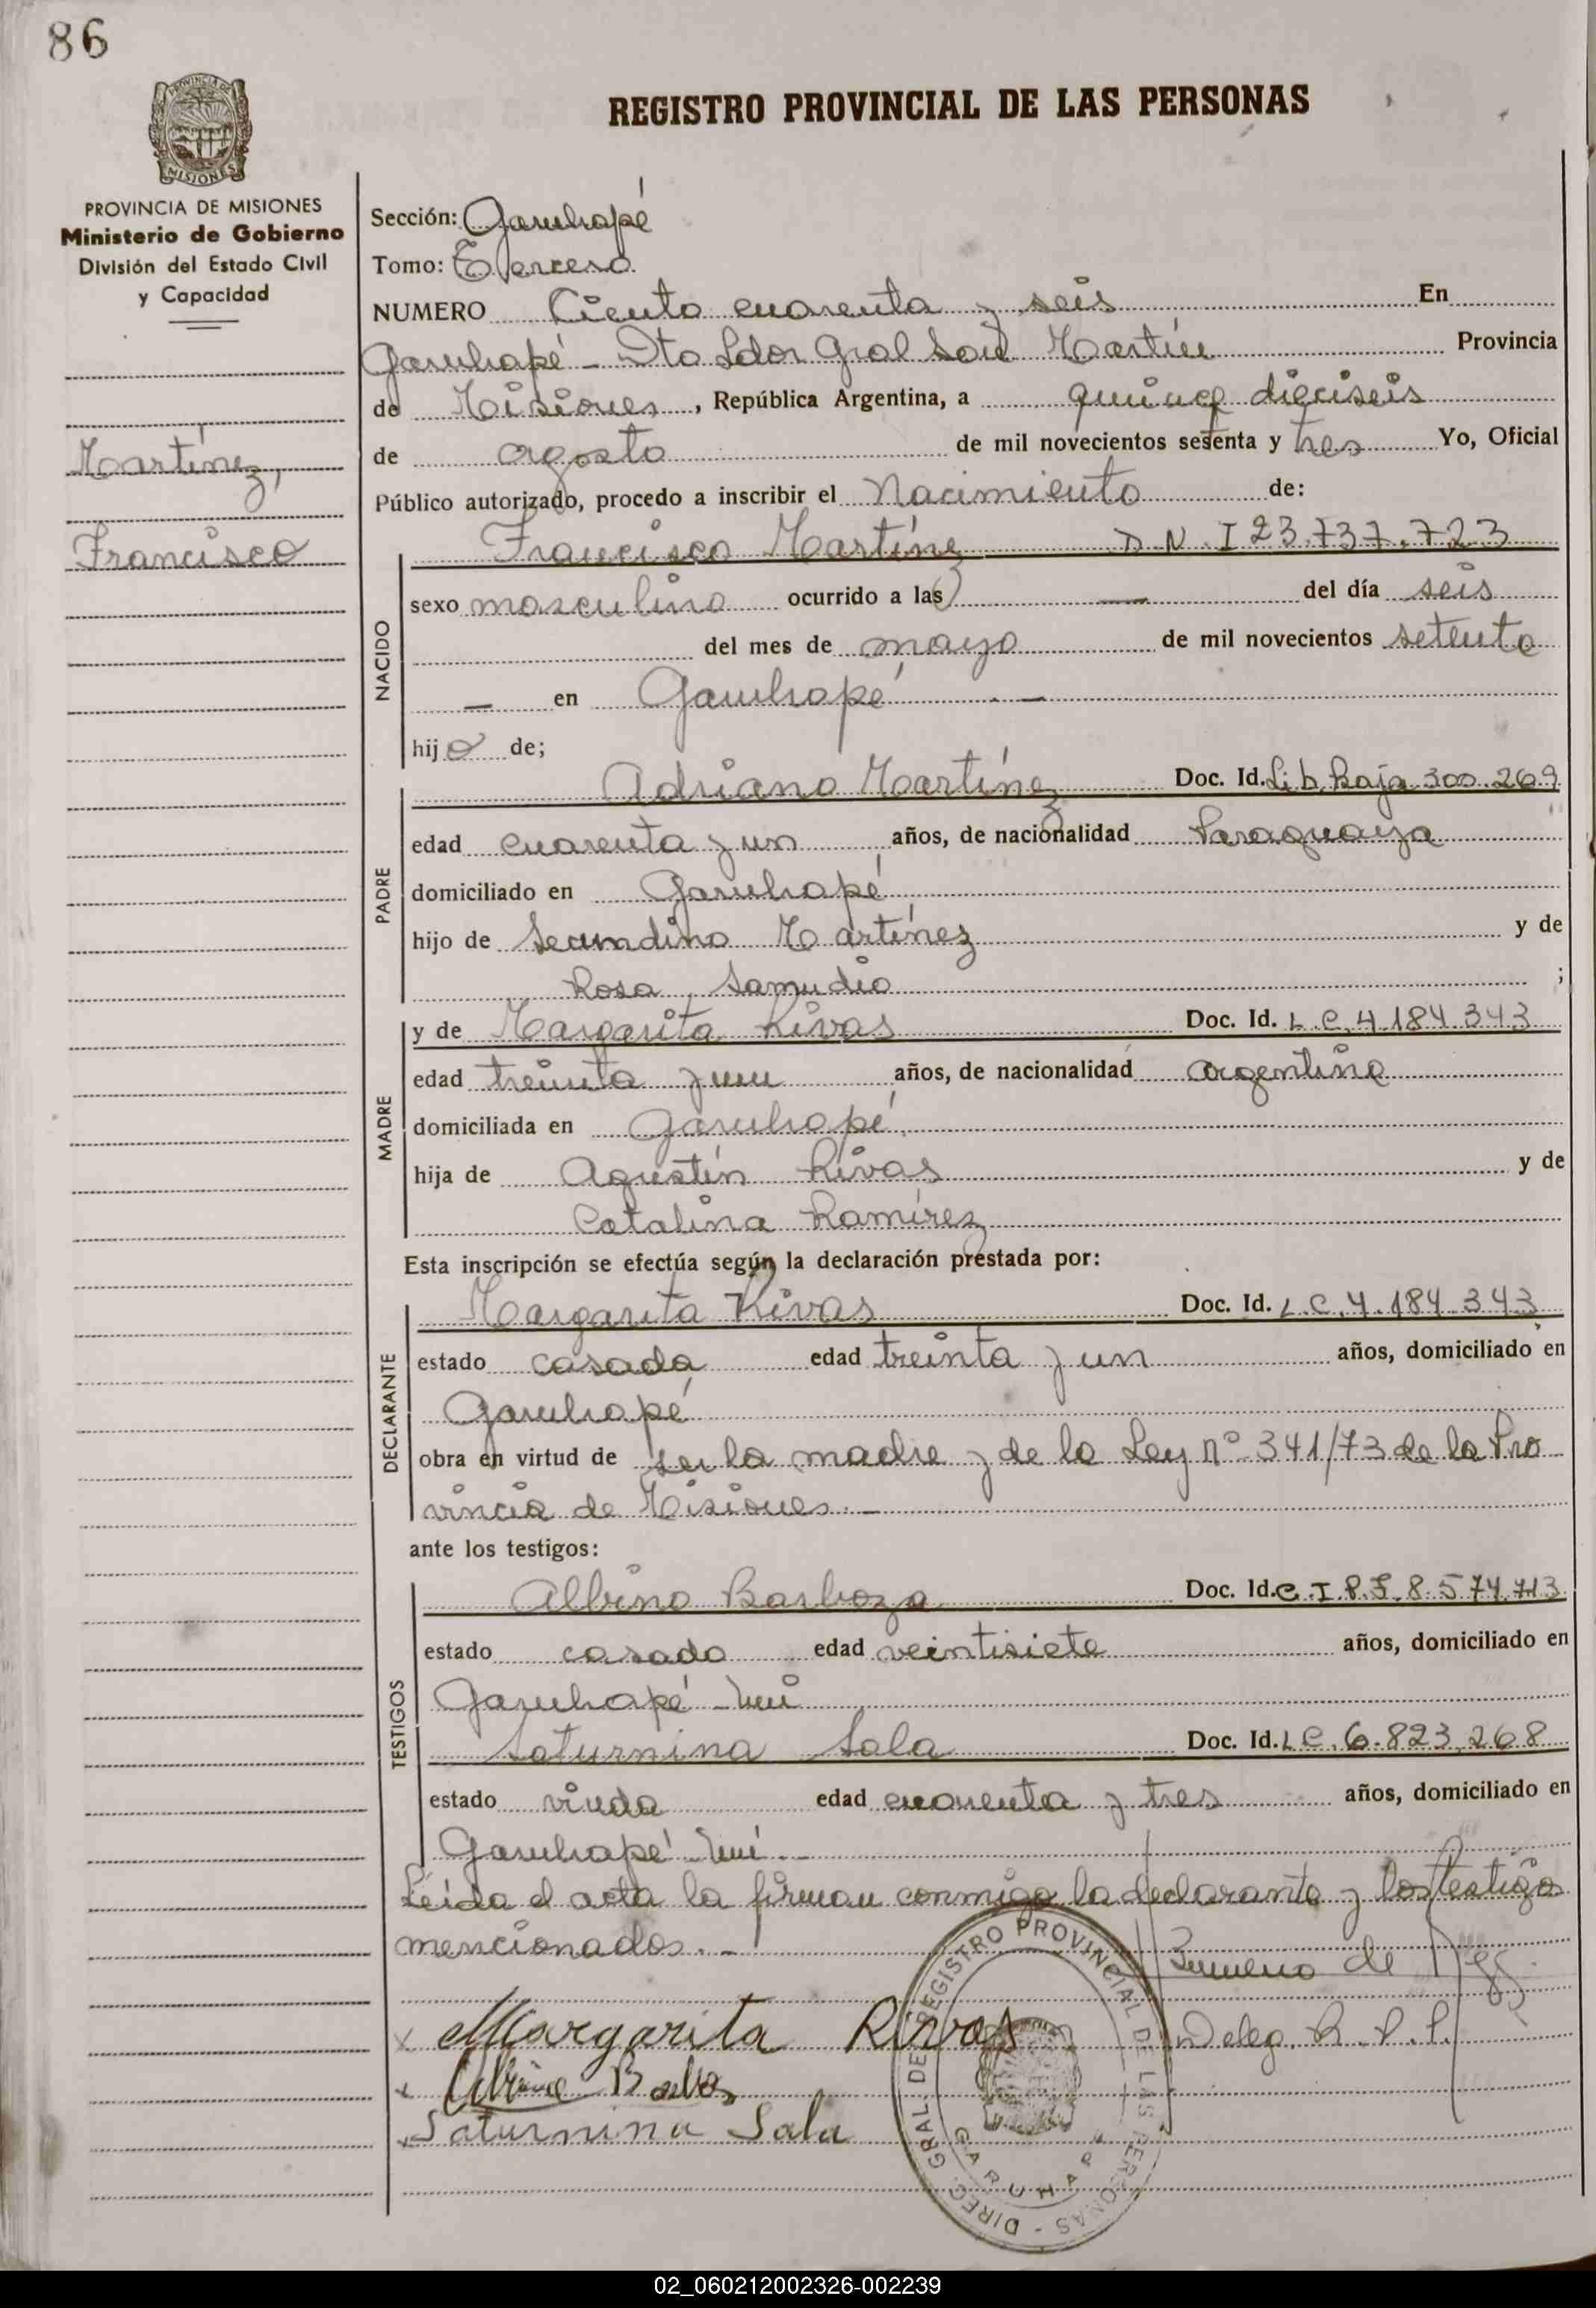 86
PROVINCIA DE MISIONES
REGISTRO PROVINCIAL DE LAS PERSONAS
PROVINCIA DE MISIONES
Ministerio de Gobierno
División del Estado Civil
y Capacidad
Martínez,
Francisco
Sección: Garuhapé
Tomo: Tercero
NUMERO Ciento cuarenta y seis En
Garuhapé - Dto Ldor Gral San Martín Provincia
de Misiones, República Argentina, a quince dieciseis
de agosto de mil novecientos setenta y tres Yo, Oficial
Público autorizado, procedo a inscribir el Nacimiento de:
NACIDO
Francisco Martínez D.N.I 23.737.723
sexo masculino ocurrido a las — del día seis
del mes de mayo de mil novecientos setenta
— en Garuhapé —
hijo de;
PADRE
Adriano Martínez Doc. Id. Lib. Roja 300.269
edad cuarenta y un años, de nacionalidad Paraguaya
domiciliado en Garuhapé
hijo de Secundino Martínez y de
Rosa Samudio ;
MADRE
y de Margarita Rivas Doc. Id. L.C. 4.184.343
edad treinta y un años, de nacionalidad argentina
domiciliada en Garuhapé
hija de Agustín Rivas y de
Catalina Ramírez
Esta inscripción se efectúa según la declaración prestada por:
DECLARANTE
Margarita Rivas Doc. Id. L.C. 4.184.343
estado casada edad treinta y un años, domiciliado en
Garuhapé
obra en virtud de ser la madre y de la Ley nº 341/73 de la Pro
vincia de Misiones.—
ante los testigos:
TESTIGOS
Albino Barboza Doc. Id. C.I.P.F. 8.574.713
estado casado edad veintisiete años, domiciliado en
Garuhapé - Mí
Saturnina Sala Doc. Id. L.C. 6.823.268
estado viuda edad cuarenta y tres años, domiciliado en
Garuhapé - Mí.-
Leída el acta la firman conmigo la declarante y los testigos
mencionados.-
x Margarita Rivas
Deleg. R.P.P.
x Albino
x Saturnina Sala
DIREC. GRAL DE REGISTRO PROVINCIAL DE LAS PERSONAS
GARUHAPE
02_060212002326-002239